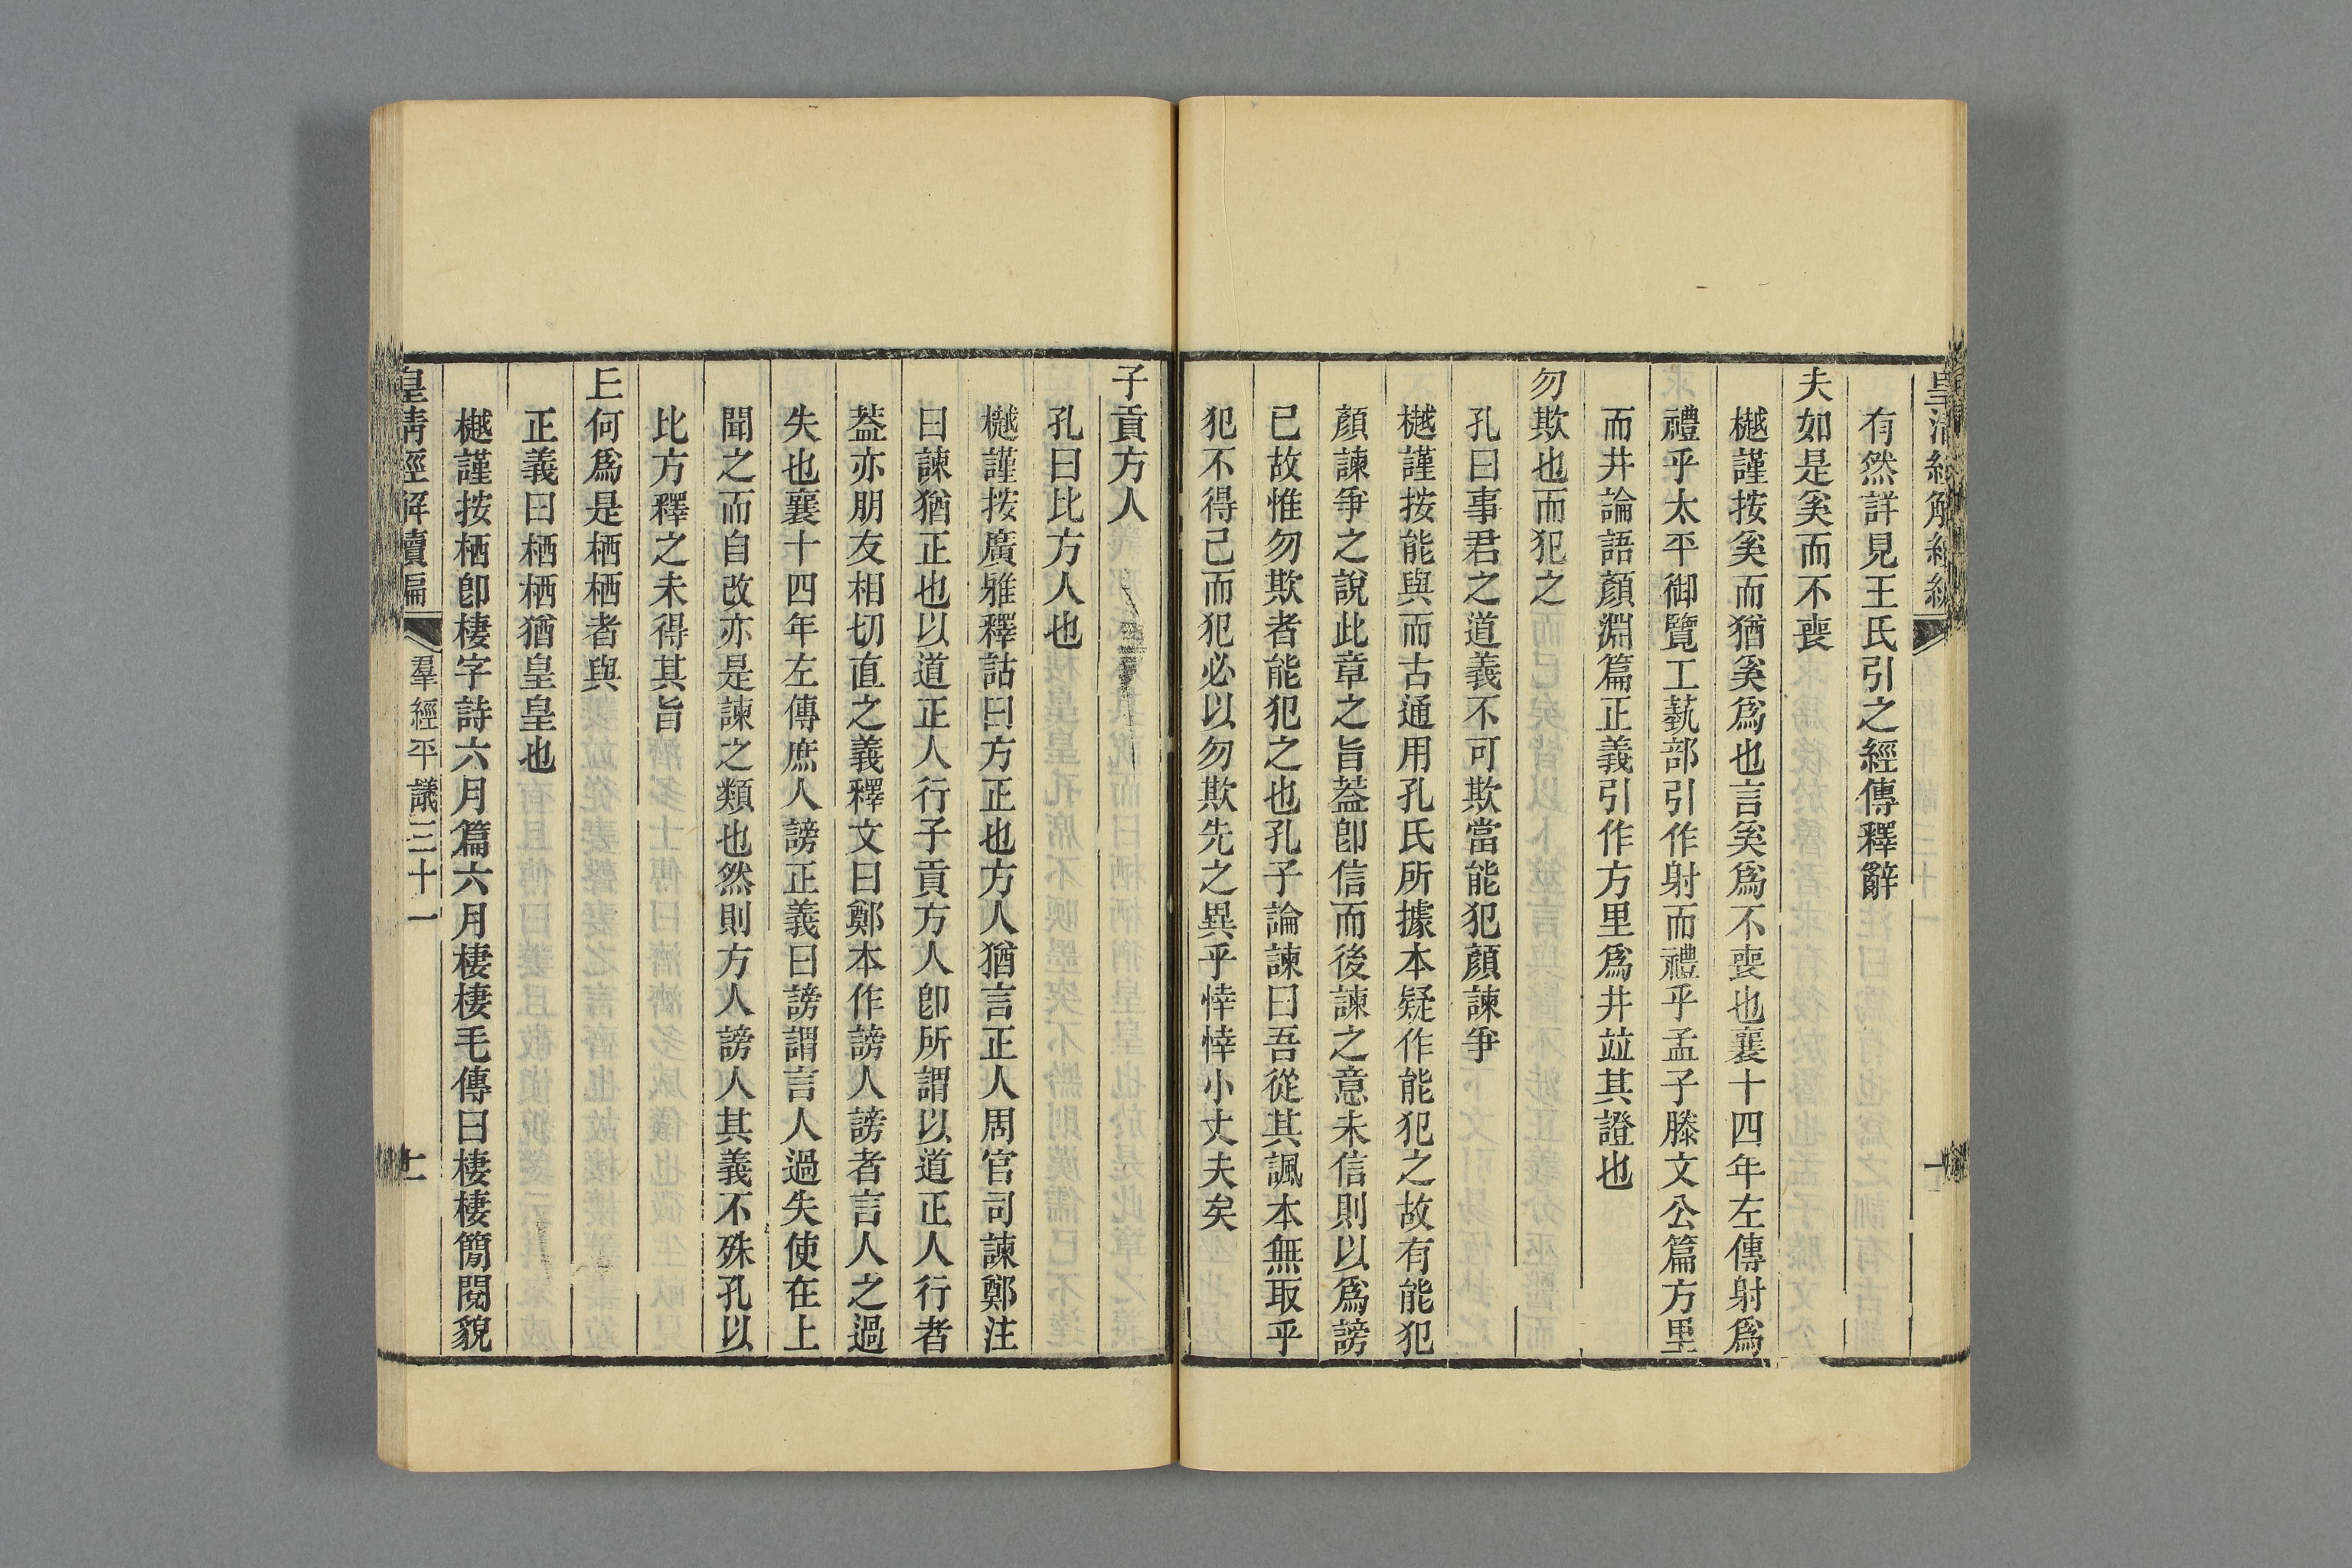 有然詳見王氏引之經傳釋辭
夫如是奚而不喪
樾謹按奚而猶奚爲也言奚爲不喪也襄十四年左傳射爲
禮乎太平御覽工藝部引作射而禮乎孟子滕文公篇方里
而井論語顏淵篇正義引作方里爲井竝其證也
勿欺也而犯之
孔曰事君之道義不可欺當能犯顏諫爭
樾謹按能與而古通用孔氏所據本疑作能犯之故有能犯
顏諫爭之說此章之旨葢卽信而後諫之意未信則以爲謗
已故惟勿欺者能犯之也孔子論諫曰吾從其諷本無取乎
犯不得已而犯必以勿欺先之異乎悻悻小丈夫矣
子貢方人
孔曰比方人也
樾謹按廣雅釋詁曰方正也方人猶言正人周官司諫鄭注
曰諫猶正也以道正人行子貢方人卽所謂以道正人行者
葢亦朋友相切直之義釋文曰鄭本作謗人謗者言人之過
失也襄十四年左傳庶人謗正義曰謗謂言人過失使在上
聞之而自改亦是諫之類也然則方人謗人其義不殊孔以
比方釋之未得其旨
丘何爲是栖栖者與
正義曰栖栖猶皇皇也
樾謹按栖卽棲字詩六月篇六月棲棲毛傳曰棲棲簡閱貌
皇清經解續編 羣經平議三十一